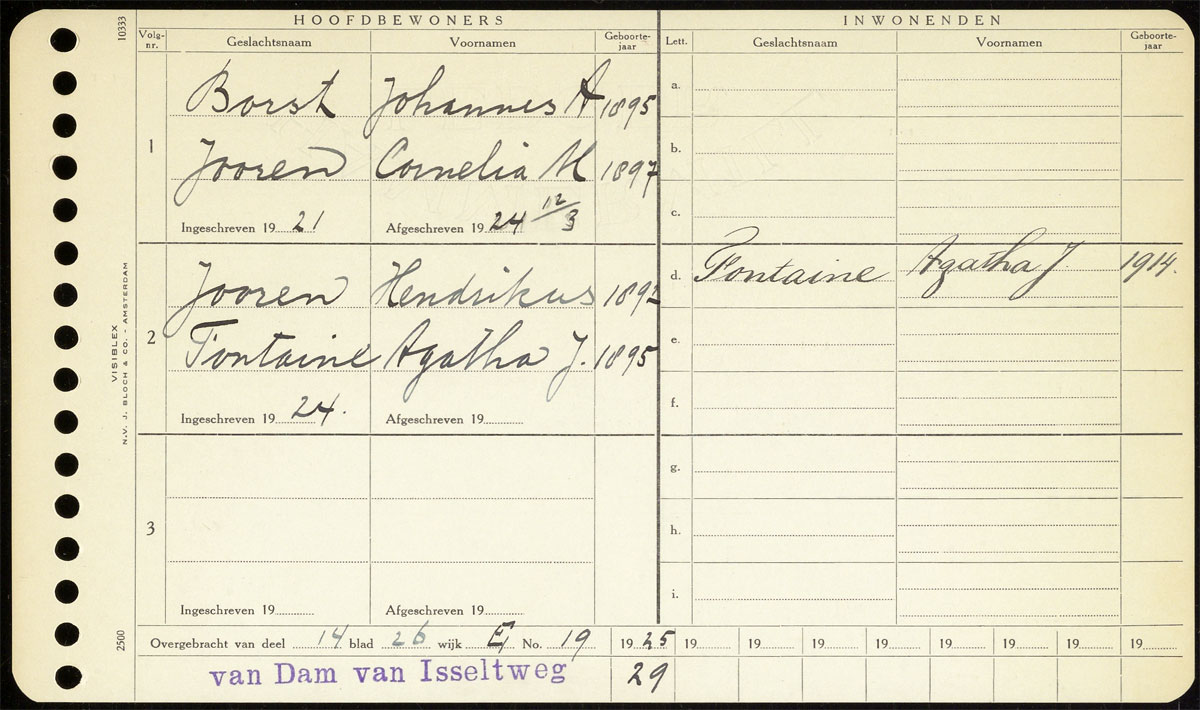 10333
HOOFDBEWONERS INWONENDEN
Volg-nr. Geslachtsnaam Voornamen Geboorte-jaar Lett. Geslachtsnaam Voornamen Geboorte-jaar
1
Borst Johannes A 1895
Jooren Cornelia M 1897
Ingeschreven 19 21 Afgeschreven 19 24 12/3
a.
b.
c.
2
Jooren Hendrikus 1892
Fontaine Agatha J. 1895
Ingeschreven 19 24. Afgeschreven 19
d. Fontaine Agatha J. 1914.
e.
f.
3
Ingeschreven 19 Afgeschreven 19
g.
h.
i.
VISIBLEX
N.V. J. BLOCH & CO. - AMSTERDAM
2500
Overgebracht van deel 14 blad 26 wijk E No. 19 19 25 19 19 19 19 19 19 19 19
van Dam van Isseltweg 29